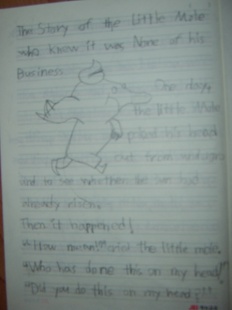 The Story of the Little Mole
who know it was None of his
Business
One day,
the little Mole
poked his head
out from
and to see whether the sun had
already risen.
Then it happened!
"How mean!" cried the little mole.
"Who has done this on my head?"
"Did you do this on my head?"